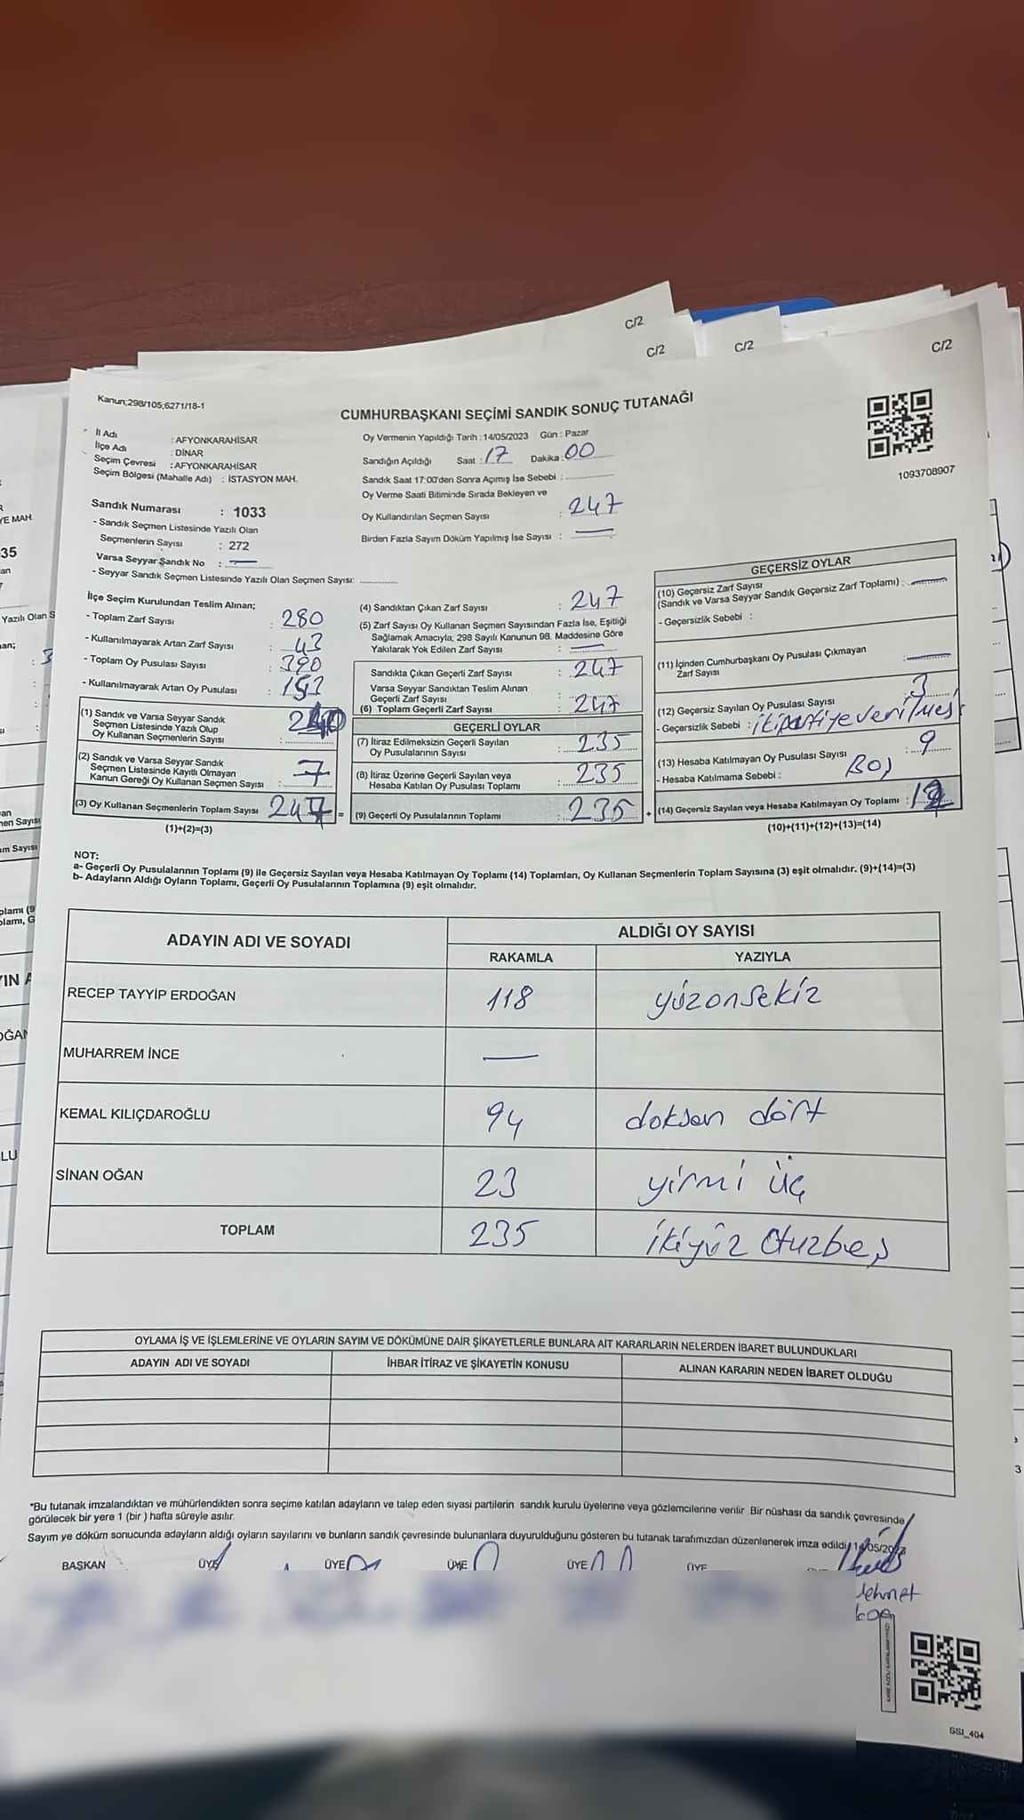 C/2
C/2
C/2
C/2
Kanun;298/105;6271/18-1
CUMHURBAŞKANI SEÇİMİ SANDIK SONUÇ TUTANAĞI
1093708907
İl Adı : AFYONKARAHİSAR
İlçe Adı : DİNAR
Seçim Çevresi : AFYONKARAHİSAR
Seçim Bölgesi (Mahalle Adı) : İSTASYON MAH.
Sandık Numarası : 1033
- Sandık Seçmen Listesinde Yazılı Olan
Seçmenlerin Sayısı : 272
Varsa Seyyar Sandık No : —
- Seyyar Sandık Seçmen Listesinde Yazılı Olan Seçmen Sayısı:
Oy Vermenin Yapıldığı Tarih : 14/05/2023 Gün : Pazar
Sandığın Açıldığı Saat : 17 Dakika : 00
Sandık Saat 17:00'den Sonra Açımış İse Sebebi :
Oy Verme Saati Bitiminde Sırada Bekleyen ve
Oy Kullandırılan Seçmen Sayısı : 247
Birden Fazla Sayım Döküm Yapılmış İse Sayısı : —
İlçe Seçim Kurulundan Teslim Alınan;
- Toplam Zarf Sayısı : 280
- Kullanılmayarak Artan Zarf Sayısı : 43
- Toplam Oy Pusulası Sayısı :
- Kullanılmayarak Artan Oy Pusulası :
(1) Sandık ve Varsa Seyyar Sandık
Seçmen Listesinde Yazılı Olup
Oy Kullanan Seçmenlerin Sayısı : 240
(2) Sandık ve Varsa Seyyar Sandık
Seçmen Listesinde Kayıtlı Olmayan
Kanun Gereği Oy Kullanan Seçmen Sayısı : 7
(3) Oy Kullanan Seçmenlerin Toplam Sayısı 247 =
(1)+(2)=(3)
(4) Sandıktan Çıkan Zarf Sayısı : 247
(5) Zarf Sayısı Oy Kullanan Seçmen Sayısından Fazla İse, Eşitliği
Sağlamak Amacıyla, 298 Sayılı Kanunun 98. Maddesine Göre
Yakılarak Yok Edilen Zarf Sayısı : —
Sandıkta Çıkan Geçerli Zarf Sayısı : 247
Varsa Seyyar Sandıktan Teslim Alınan
Geçerli Zarf Sayısı :
(6) Toplam Geçerli Zarf Sayısı : 247
GEÇERLİ OYLAR
(7) İtiraz Edilmeksizin Geçerli Sayılan
Oy Pusulalarının Sayısı : 235
(8) İtiraz Üzerine Geçerli Sayılan veya
Hesaba Katılan Oy Pusulası Toplamı : 235
(9) Geçerli Oy Pusulalarının Toplamı : 235 +
GEÇERSİZ OYLAR
(10) Geçersiz Zarf Sayısı
(Sandık ve Varsa Seyyar Sandık Geçersiz Zarf Toplamı) : —
- Geçersizlik Sebebi :
(11) İçinden Cumhurbaşkanı Oy Pusulası Çıkmayan
Zarf Sayısı : —
(12) Geçersiz Sayılan Oy Pusulası Sayısı : 3
- Geçersizlik Sebebi : iki partiye verilmesi
(13) Hesaba Katılmayan Oy Pusulası Sayısı : 9
- Hesaba Katılmama Sebebi : Boş
(14) Geçersiz Sayılan veya Hesaba Katılmayan Oy Toplamı : 12
(10)+(11)+(12)+(13)=(14)
NOT:
a- Geçerli Oy Pusulalarının Toplamı (9) ile Geçersiz Sayılan veya Hesaba Katılmayan Oy Toplamı (14) Toplamları, Oy Kullanan Seçmenlerin Toplam Sayısına (3) eşit olmalıdır. (9)+(14)=(3)
b- Adayların Aldığı Oyların Toplamı, Geçerli Oy Pusulalarının Toplamına (9) eşit olmalıdır.
ADAYIN ADI VE SOYADI ALDIĞI OY SAYISI
RAKAMLA YAZIYLA
RECEP TAYYİP ERDOĞAN 118 yüzonsekiz
MUHARREM İNCE —
KEMAL KILIÇDAROĞLU 94 doksan dört
SİNAN OĞAN 23 yirmi üç
TOPLAM 235 ikiyüz otuzbeş
OYLAMA İŞ VE İŞLEMLERİNE VE OYLARIN SAYIM VE DÖKÜMÜNE DAİR ŞİKAYETLERLE BUNLARA AİT KARARLARIN NELERDEN İBARET BULUNDUKLARI
ADAYIN ADI VE SOYADI İHBAR İTİRAZ VE ŞİKAYETİN KONUSU ALINAN KARARIN NEDEN İBARET OLDUĞU
*Bu tutanak imzalandıktan ve mühürlendikten sonra seçime katılan adayların ve talep eden siyasi partilerin sandık kurulu üyelerine veya gözlemcilerine verilir Bir nüshası da sandık çevresinde
görülecek bir yere 1 (bir ) hafta süreyle asılır.
Sayım ve döküm sonucunda adayların aldığı oyların sayılarını ve bunların sandık çevresinde bulunanlara duyurulduğunu gösteren bu tutanak tarafımızdan düzenlenerek imza edildi. 14/05/2023
BAŞKAN ÜYE ÜYE ÜYE ÜYE ÜYE
GSI_404